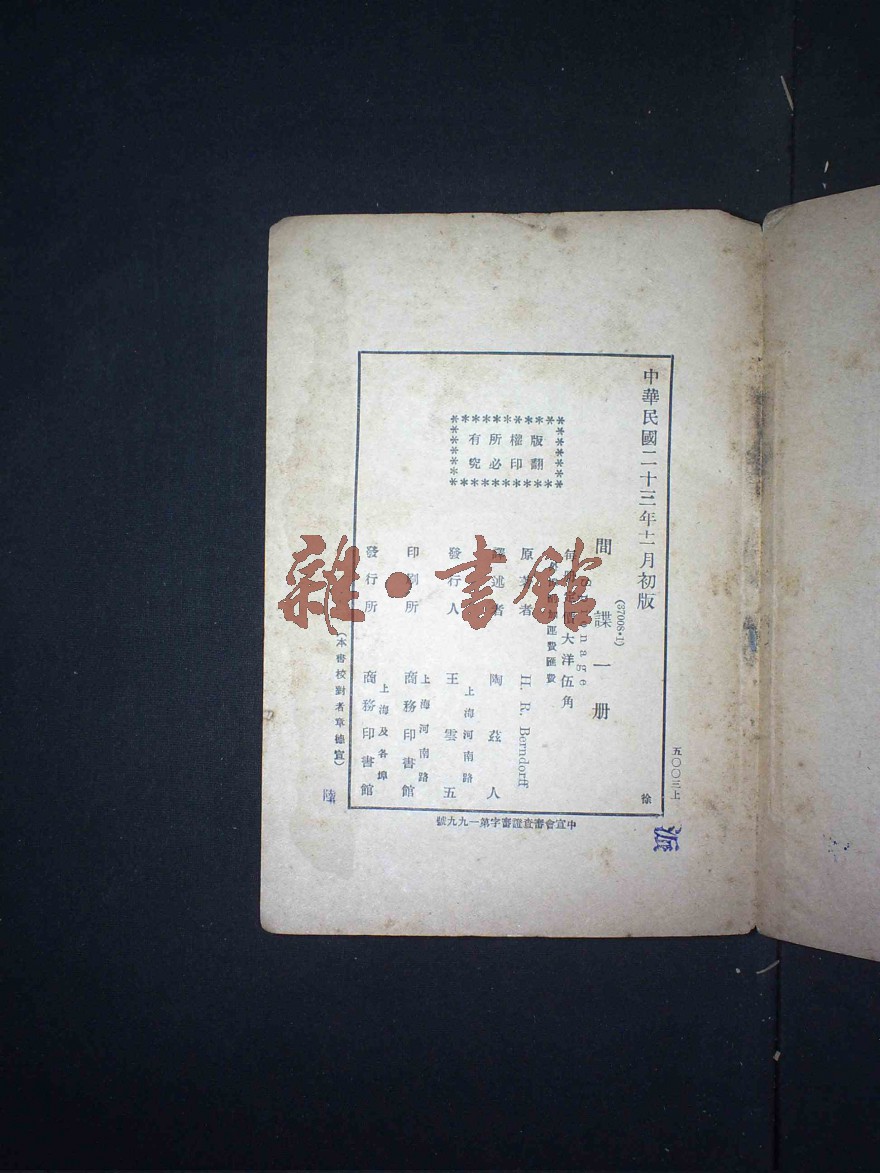 中華民國二十三年十一月初版
(37008·1)
間諜一册
Espionage
每册定價大洋伍角
外埠酌加運費匯費
版權所有
翻印必究
原著者 H. R. Berndorff
譯述者 陶茲人
發行人 王雲五
上海河南路
印刷所 商務印書館
上海河南路
發行所 商務印書館
上海及各埠
(本書校對者章德宣)
五〇〇三上
徐
中宣會審查證審字第一九九號
雜·書館